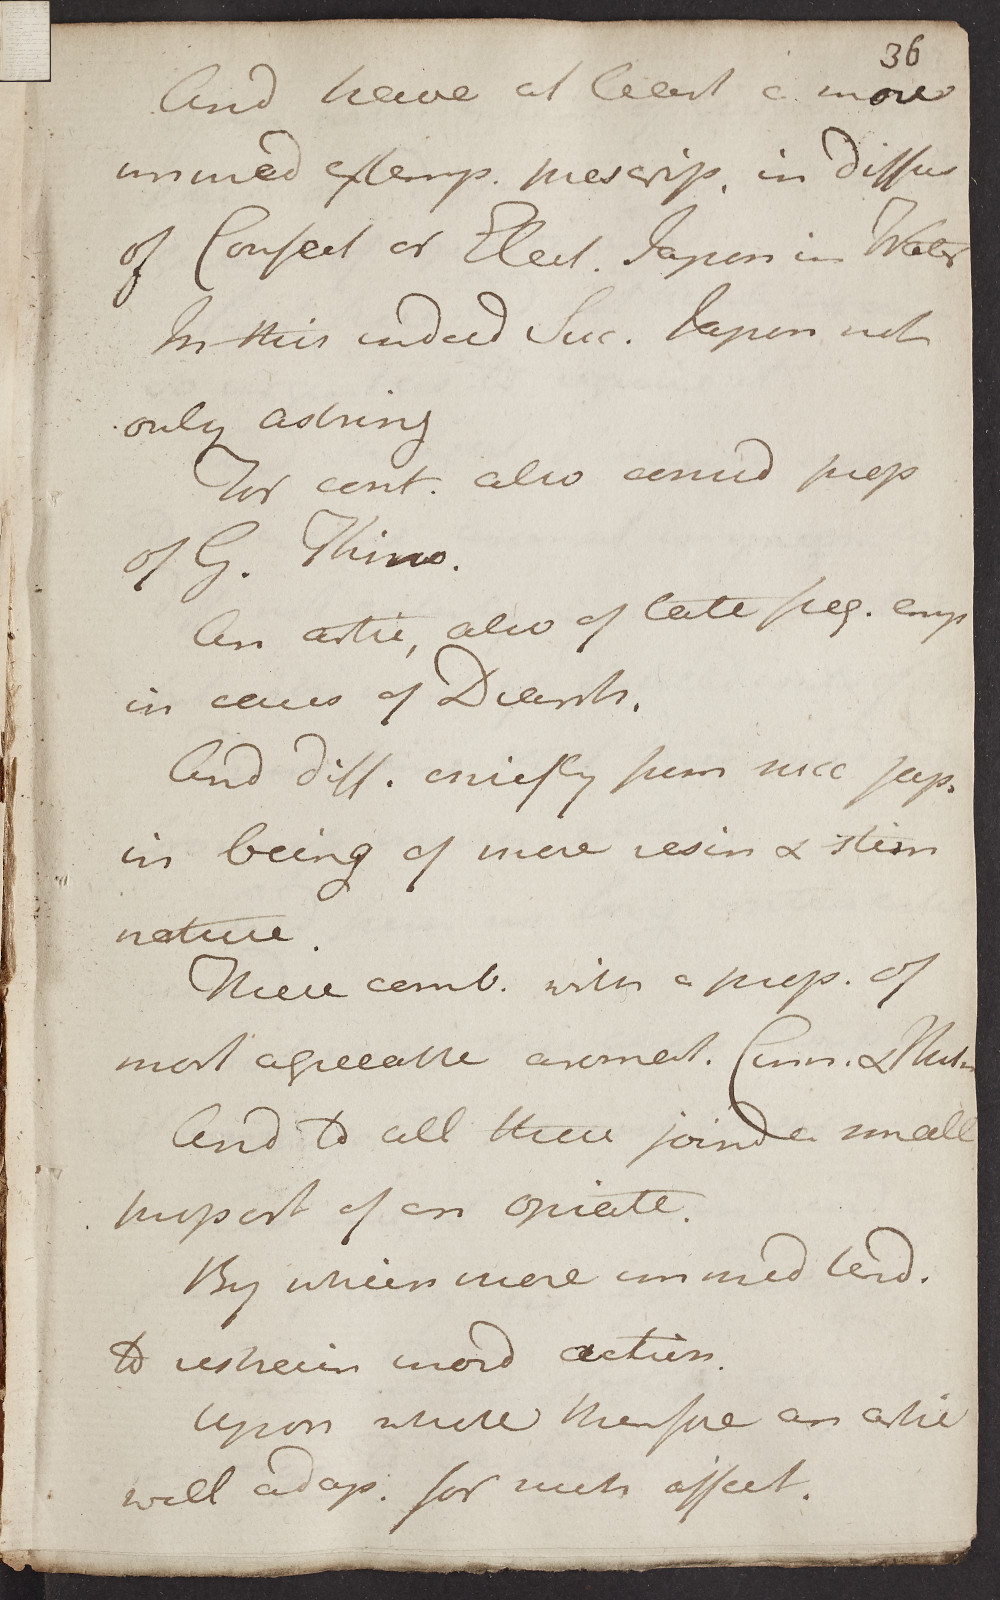 36
And have at least a more
immed extemp. prescrip. in diffus
of Confect or Elect. Japon in Water
In this indeed Suc. Japon not
only astring
For cont. also consid prep
of G. Kino.
An artic, also of late freq. emp
in cases of Diarrh.
And diff. chiefly from succ Jap.
in being of more resin & stim
nature.
These comb. with a prop. of
most agreeable aromat. Cinn. & Nutm
And to all these joind a small
proport of an opiate.
By which more immed tend.
to restrain morb action.
Upon whole therefore an artic
well adap. for such affect.